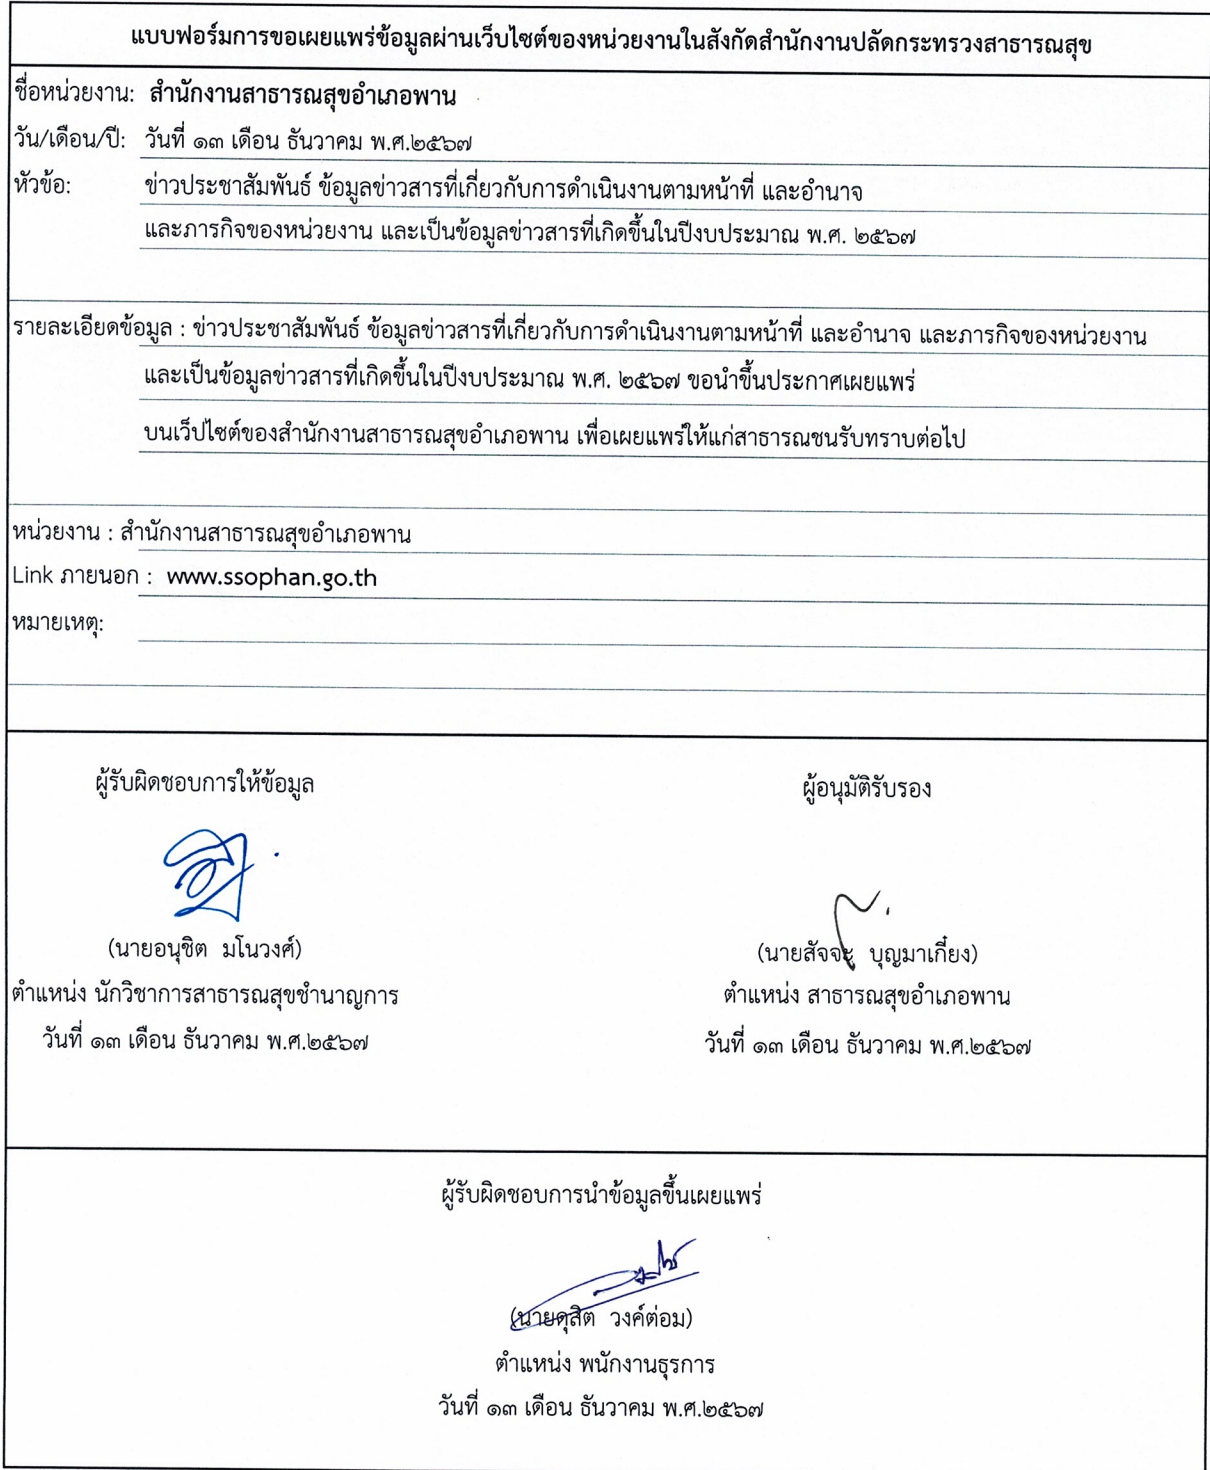 แบบฟอร์มการขอเผยแพร่ข้อมูลผ่านเว็บไซต์ของหน่วยงานในสังกัดสำนักงานปลัดกระทรวงสาธารณสุข
ชื่อหน่วยงาน: สำนักงานสาธารณสุขอำเภอพาน
วัน/เดือน/ปี: วันที่ ๑๓ เดือน ธันวาคม พ.ศ.๒๕๖๗
หัวข้อ: ข่าวประชาสัมพันธ์ ข้อมูลข่าวสารที่เกี่ยวกับการดำเนินงานตามหน้าที่ และอำนาจ
และภารกิจของหน่วยงาน และเป็นข้อมูลข่าวสารที่เกิดขึ้นในปีงบประมาณ พ.ศ. ๒๕๖๗
รายละเอียดข้อมูล : ข่าวประชาสัมพันธ์ ข้อมูลข่าวสารที่เกี่ยวกับการดำเนินงานตามหน้าที่ และอำนาจ และภารกิจของหน่วยงาน
และเป็นข้อมูลข่าวสารที่เกิดขึ้นในปีงบประมาณ พ.ศ. ๒๕๖๗ ขอนำขึ้นประกาศเผยแพร่
บนเว็ปไซต์ของสำนักงานสาธารณสุขอำเภอพาน เพื่อเผยแพร่ให้แก่สาธารณชนรับทราบต่อไป
หน่วยงาน : สำนักงานสาธารณสุขอำเภอพาน
Link ภายนอก : www.ssophan.go.th
หมายเหตุ:
ผู้รับผิดชอบการให้ข้อมูล
(นายอนุชิต มโนวงศ์)
ตำแหน่ง นักวิชาการสาธารณสุขชำนาญการ
วันที่ ๑๓ เดือน ธันวาคม พ.ศ.๒๕๖๗
ผู้อนุมัติรับรอง
(นายสัจจะ บุญมาเกี๋ยง)
ตำแหน่ง สาธารณสุขอำเภอพาน
วันที่ ๑๓ เดือน ธันวาคม พ.ศ.๒๕๖๗
ผู้รับผิดชอบการนำข้อมูลขึ้นเผยแพร่
(นายดุสิต วงค์ต่อม)
ตำแหน่ง พนักงานธุรการ
วันที่ ๑๓ เดือน ธันวาคม พ.ศ.๒๕๖๗